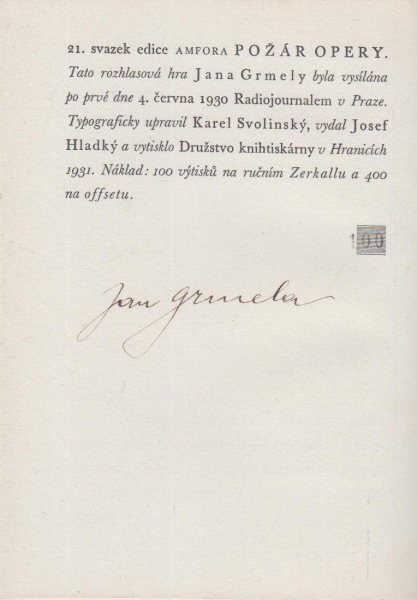 21. svazek edice AMFORA POŽÁR OPERY.
Tato rozhlasová hra Jana Grmely byla vysílána
po prvé dne 4. června 1930 Radiojournalem v Praze.
Typograficky upravil Karel Svolinský, vydal Josef
Hladký a vytisklo Družstvo knihtiskárny v Hranicích
1931. Náklad: 100 výtisků na ručním Zerkallu a 400
na offsetu.
100
Jan Grmela